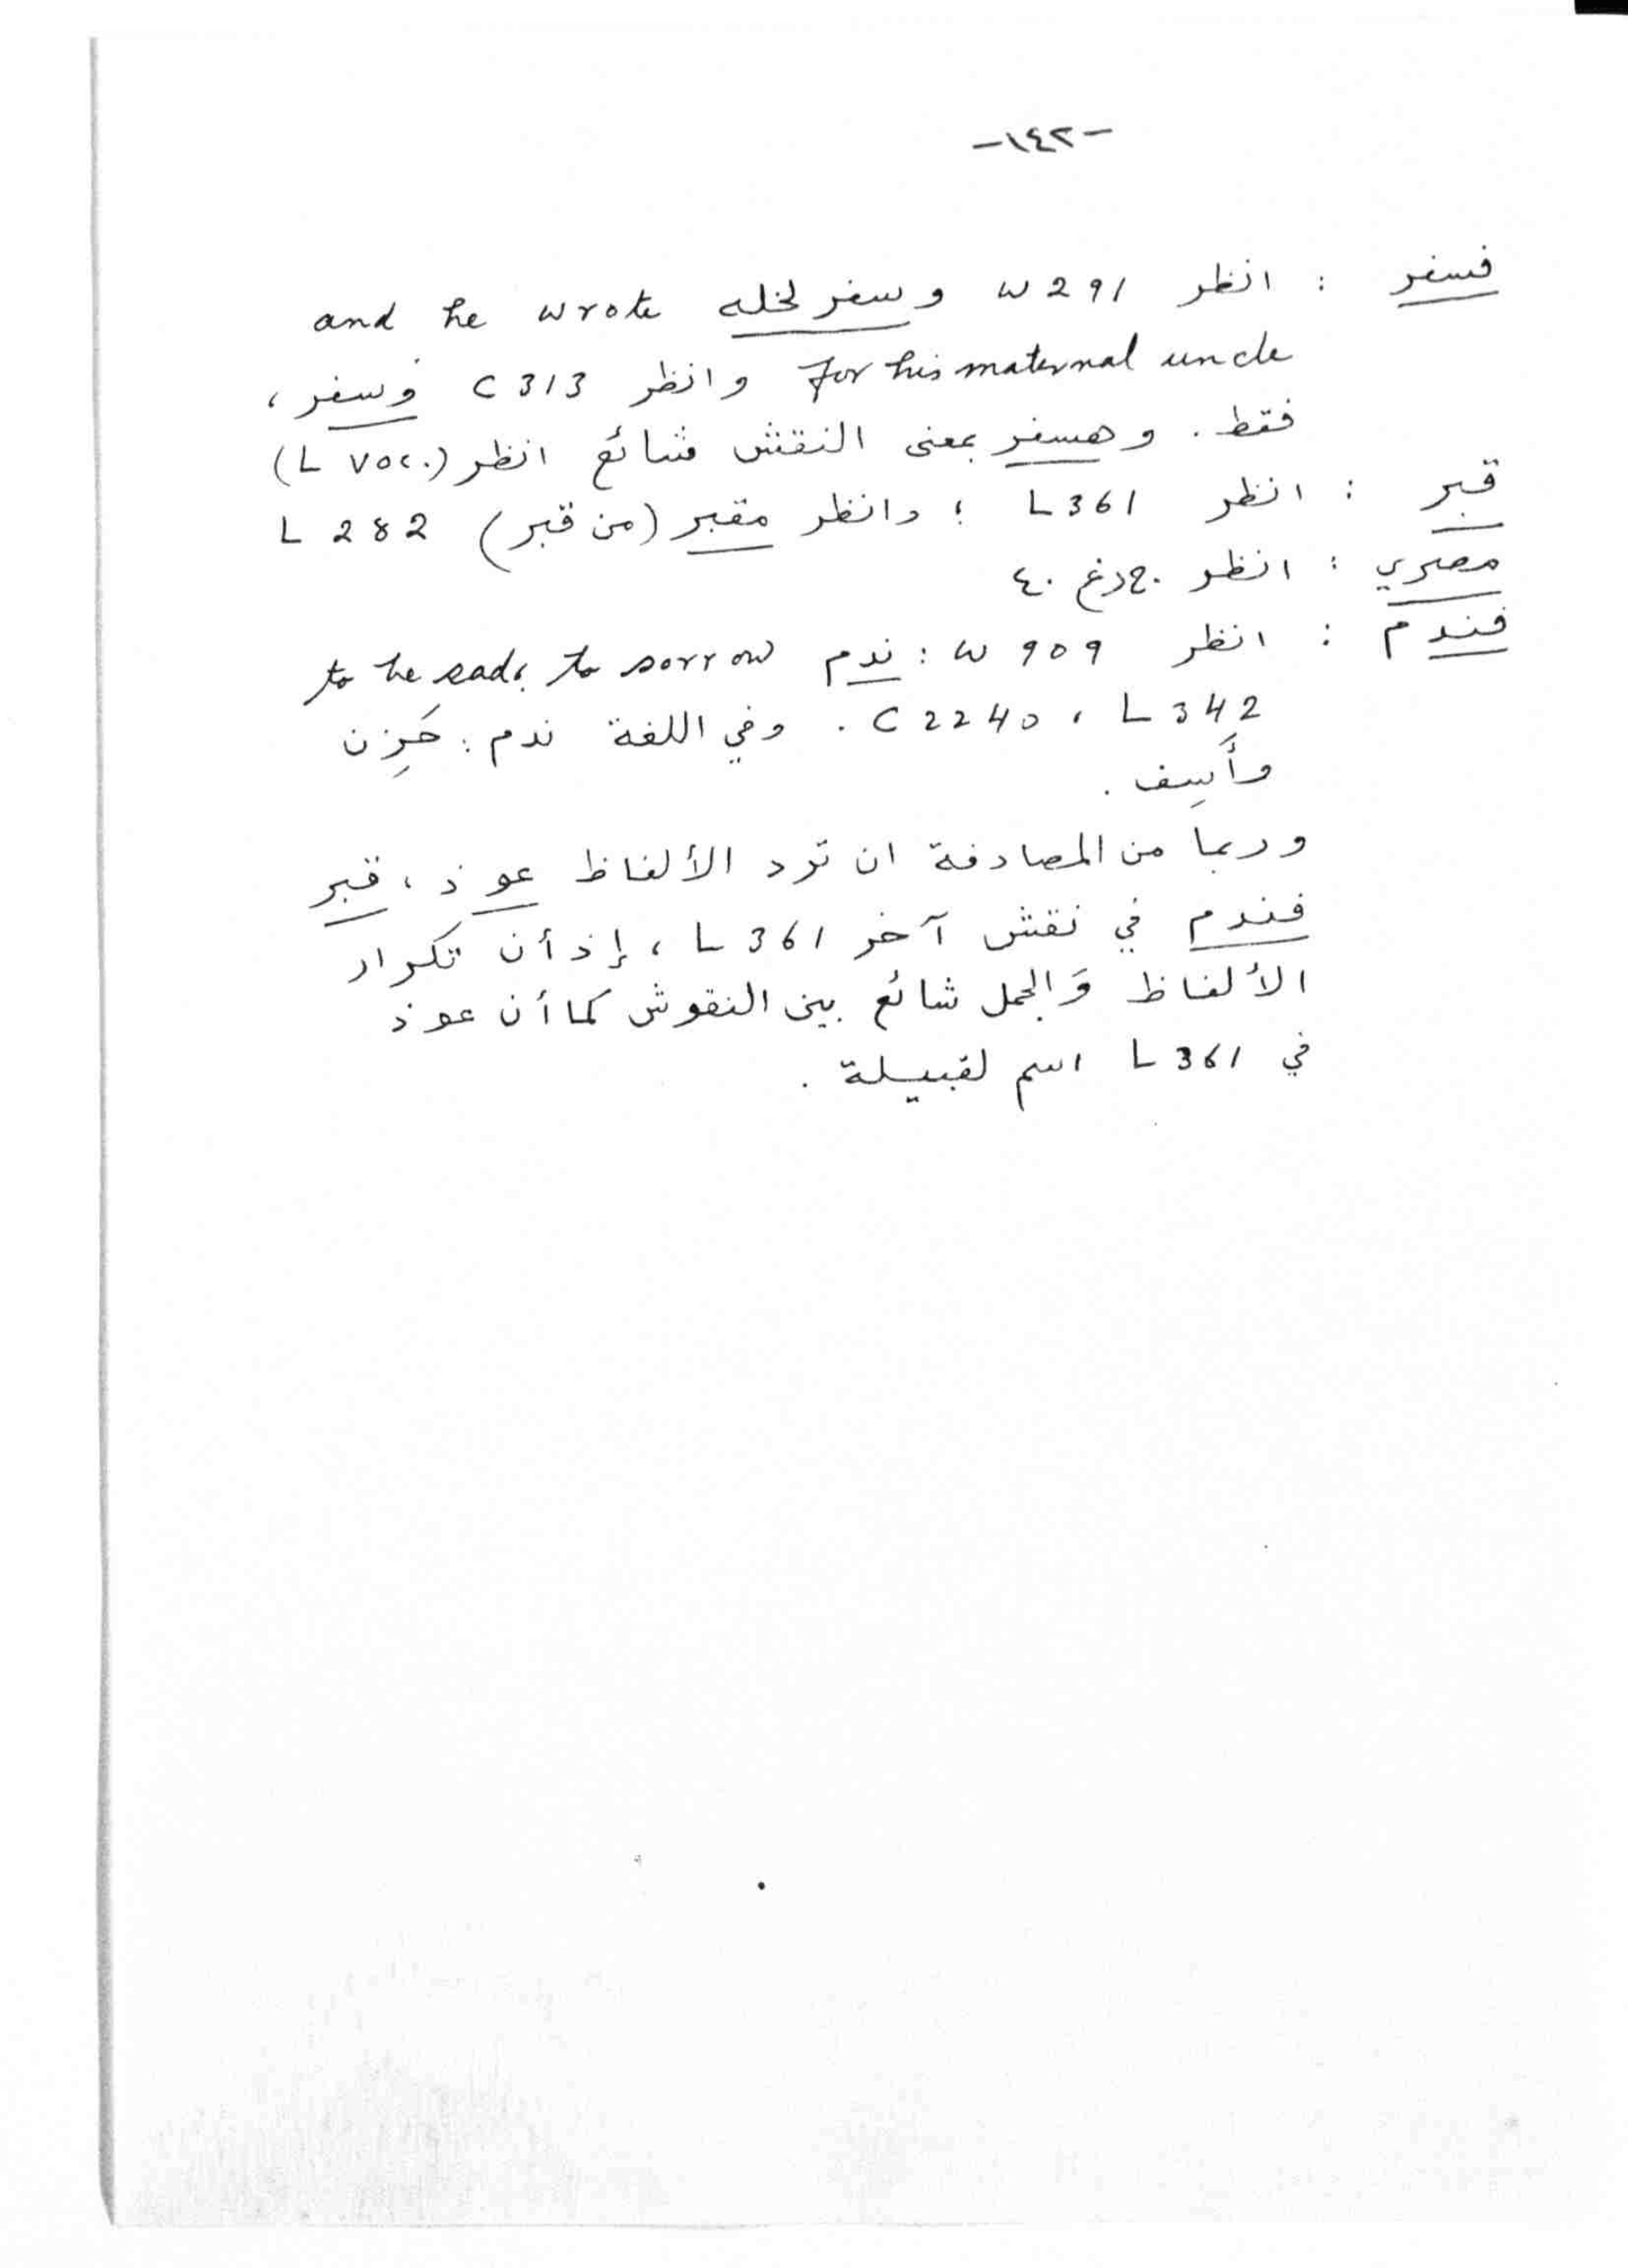 -١٤٢-
فسفر : انظر W 291 وسفر لخله and he wrote
for his maternal uncle وانظر C 313 وسفر ،
فقط . وهسفر بمعنى النقش شائع انظر (L voc.)
قبر : انظر L 361 ؛ وانظر مقبر (من قبر) L 282
مصري : انظر ٤٠
فندم : انظر W 909 : ندم to be sad, to sorrow
C 2240 ، L 342 . وفي اللغة ندم : حَزِن
وأَسِف .
وربما من المصادفة ان ترد الألفاظ عوذ ، قبر
فندم في نقش آخر L 361 ، إذ أن تكرار
الألفاظ وَالجمل شائع بين النقوش كما أن عوذ
في L 361 اسم لقبيلة .